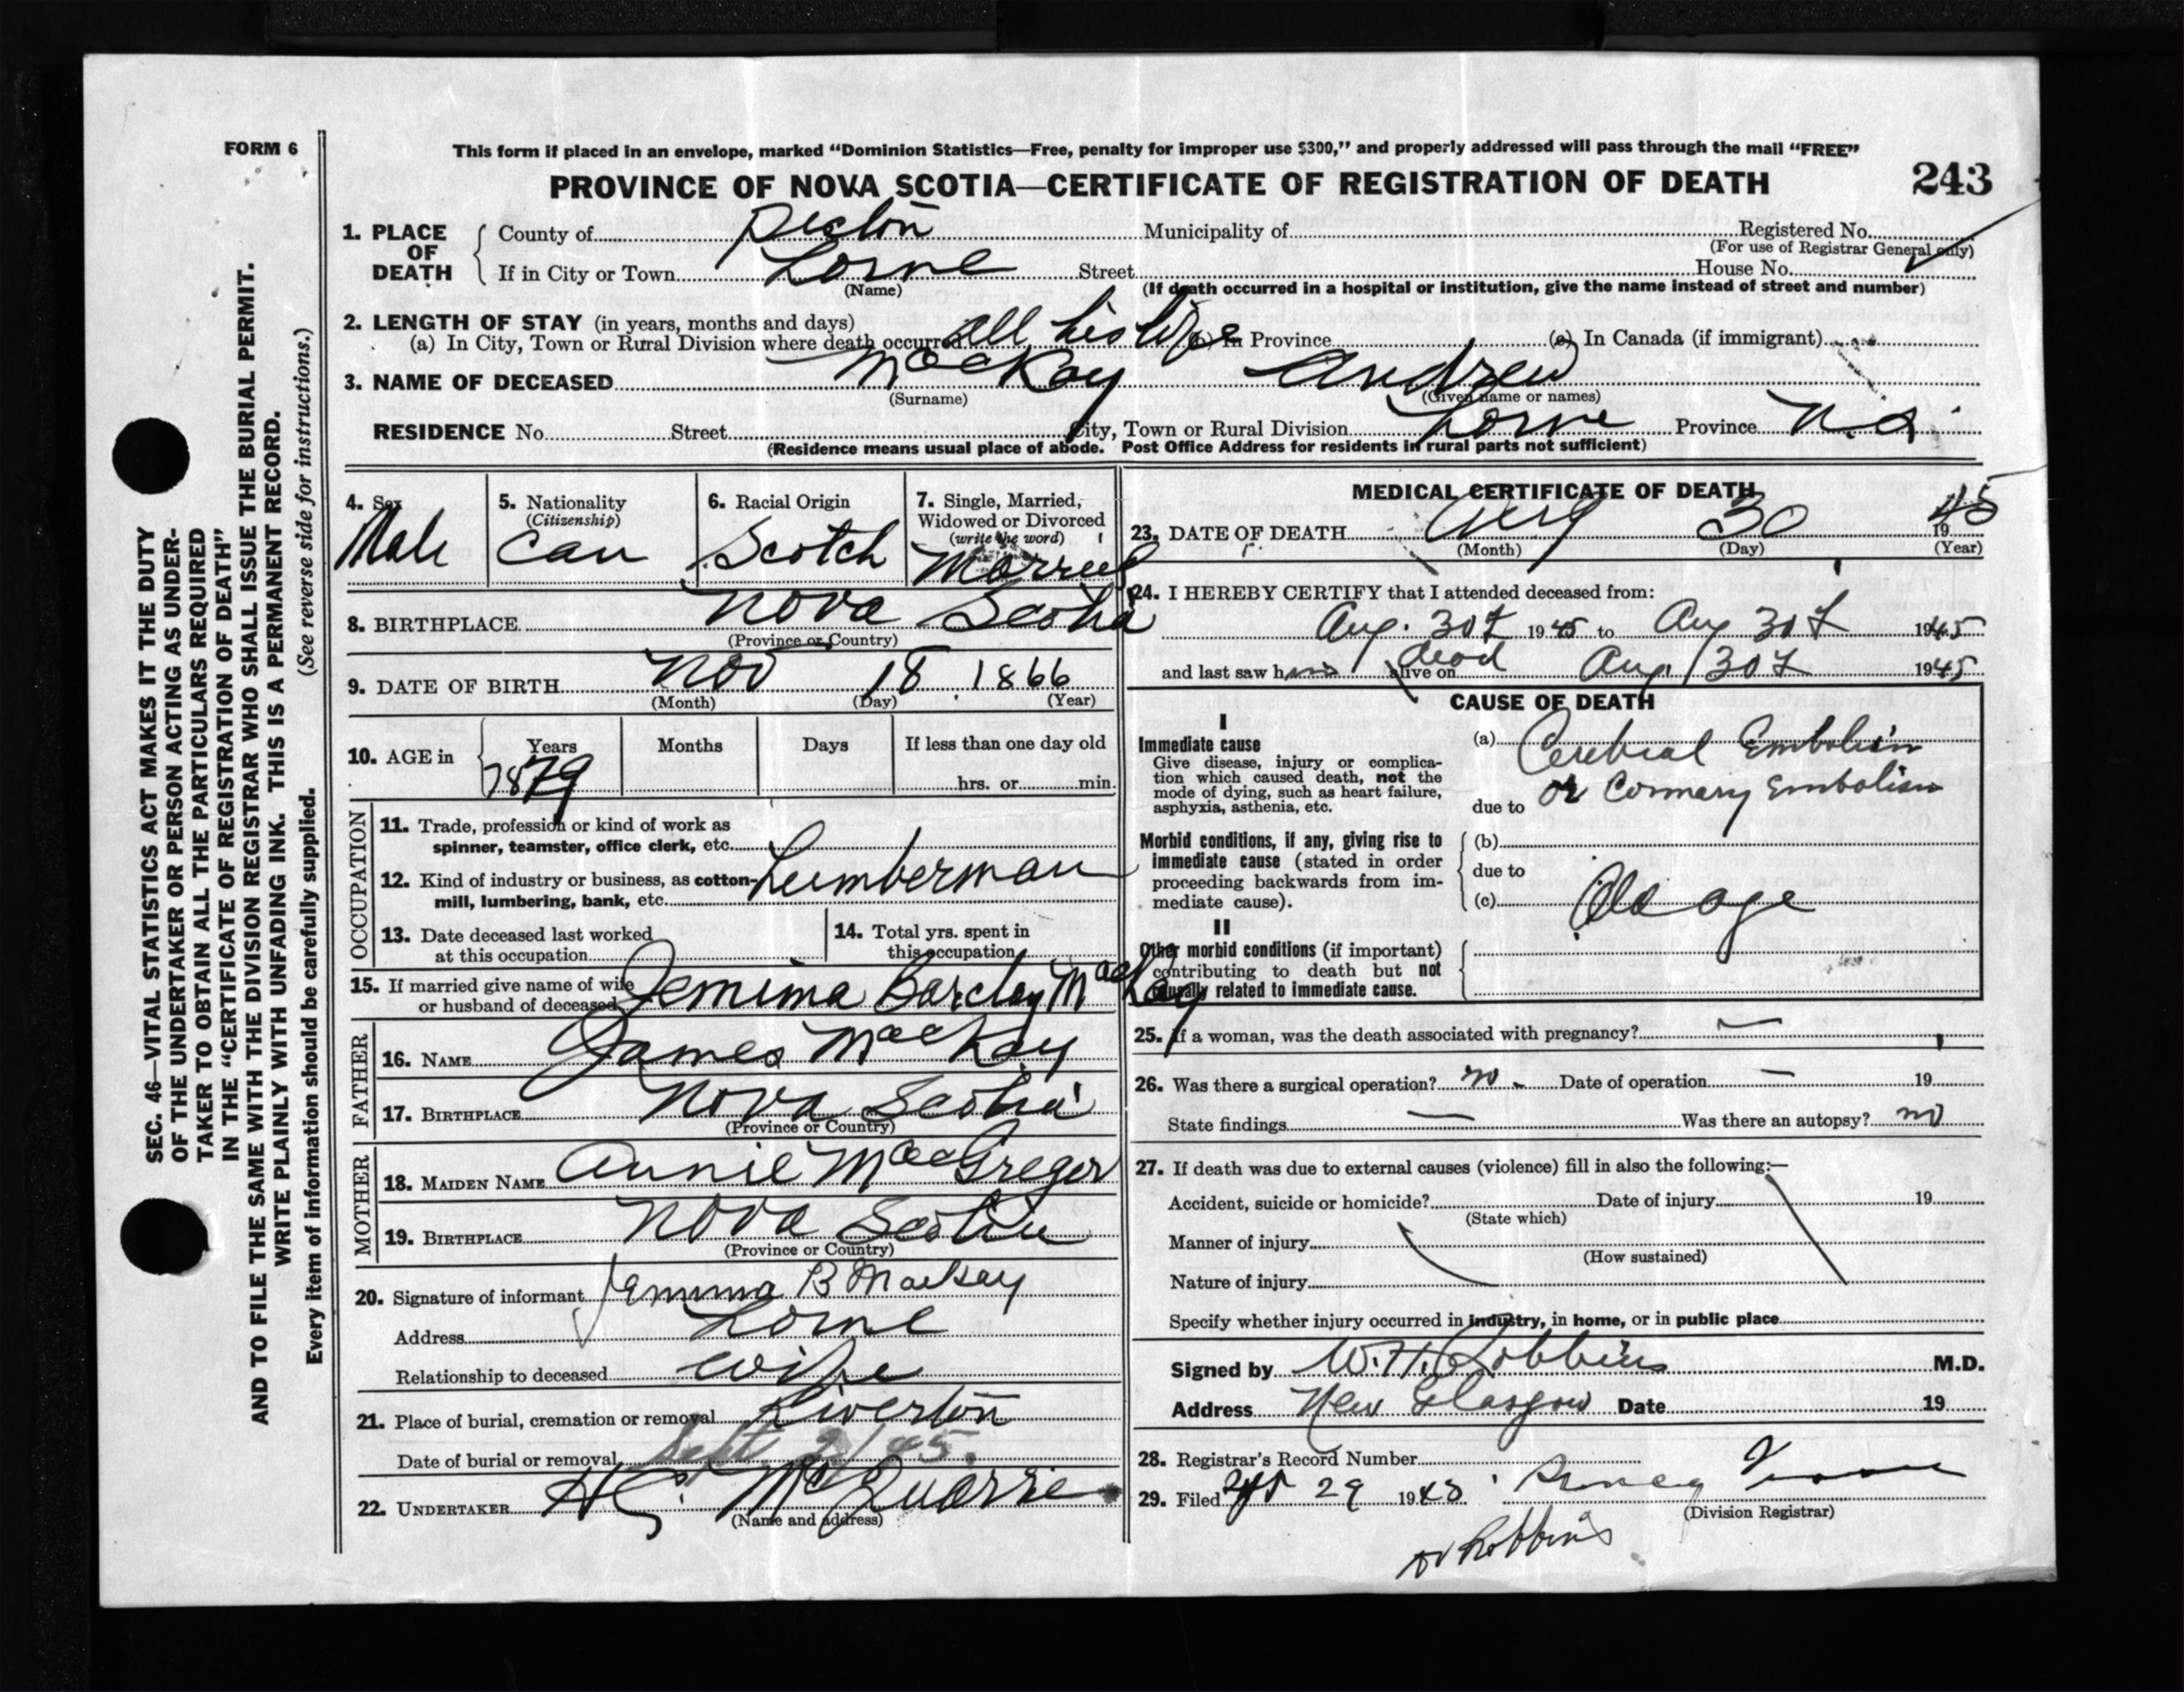 FORM 6
This form if placed in an envelope, marked "Dominion Statistics—Free, penalty for improper use $300," and properly addressed will pass through the mail "FREE"
PROVINCE OF NOVA SCOTIA—CERTIFICATE OF REGISTRATION OF DEATH 243
1. PLACE OF DEATH County of Pictou Municipality of Registered No.
(For use of Registrar General only)
If in City or Town Lorne Street House No.
(Name) (If death occurred in a hospital or institution, give the name instead of street and number)
2. LENGTH OF STAY (in years, months and days)
(a) In City, Town or Rural Division where death occurred all his life (b) In Province (c) In Canada (if immigrant)
3. NAME OF DECEASED MacKay Andrew
(Surname) (Given name or names)
RESIDENCE No. Street City, Town or Rural Division Lorne Province N.S.
(Residence means usual place of abode. Post Office Address for residents in rural parts not sufficient)
4. Sex Male
5. Nationality (Citizenship) Can
6. Racial Origin Scotch
7. Single, Married, Widowed or Divorced (write the word) Married
8. BIRTHPLACE Nova Scotia
(Province or Country)
9. DATE OF BIRTH Nov 18 1866
(Month) (Day) (Year)
10. AGE in Years Months Days If less than one day old
78 79 hrs. or min.
OCCUPATION
11. Trade, profession or kind of work as
spinner, teamster, office clerk, etc.
12. Kind of industry or business, as cotton- Lumberman
mill, lumbering, bank, etc.
13. Date deceased last worked at this occupation
14. Total yrs. spent in this occupation
15. If married give name of wife or husband of deceased Jemima Barclay MacKay
FATHER
16. NAME James MacKay
17. BIRTHPLACE Nova Scotia
(Province or Country)
MOTHER
18. MAIDEN NAME Annie MacGreger
19. BIRTHPLACE Nova Scotia
(Province or Country)
20. Signature of informant Jemima B MacKay
Address Lorne
Relationship to deceased wife
21. Place of burial, cremation or removal Riverton
Date of burial or removal Sept. 2/45.
22. UNDERTAKER McQuarrie
(Name and address)
MEDICAL CERTIFICATE OF DEATH
23. DATE OF DEATH Aug 30 1945
(Month) (Day) (Year)
24. I HEREBY CERTIFY that I attended deceased from:
Aug. 30t 1945 to Aug 30t 1945
and last saw him alive on dead Aug. 30t 1945
CAUSE OF DEATH
I
Immediate cause
Give disease, injury or complica-
tion which caused death, not the
mode of dying, such as heart failure,
asphyxia, asthenia, etc.
(a) Cerebral Embolism
due to or Coronary Embolism
Morbid conditions, if any, giving rise to
immediate cause (stated in order
proceeding backwards from im-
mediate cause).
(b)
due to
(c) Old age
II
Other morbid conditions (if important)
contributing to death but not
causally related to immediate cause.
25. If a woman, was the death associated with pregnancy? —
26. Was there a surgical operation? no. Date of operation — 19
State findings — Was there an autopsy? no
27. If death was due to external causes (violence) fill in also the following:—
Accident, suicide or homicide? Date of injury 19
(State which)
Manner of injury
(How sustained)
Nature of injury
Specify whether injury occurred in industry, in home, or in public place
Signed by W.H. Robbins M.D.
Address New Glasgow Date 19
28. Registrar's Record Number
29. Filed 29 1945
(Division Registrar)
Dr Robbins
SEC. 46—VITAL STATISTICS ACT MAKES IT THE DUTY
OF THE UNDERTAKER OR PERSON ACTING AS UNDER-
TAKER TO OBTAIN ALL THE PARTICULARS REQUIRED
IN THE "CERTIFICATE OF REGISTRATION OF DEATH"
AND TO FILE THE SAME WITH THE DIVISION REGISTRAR WHO SHALL ISSUE THE BURIAL PERMIT.
WRITE PLAINLY WITH UNFADING INK. THIS IS A PERMANENT RECORD.
Every item of information should be carefully supplied. (See reverse side for instructions.)